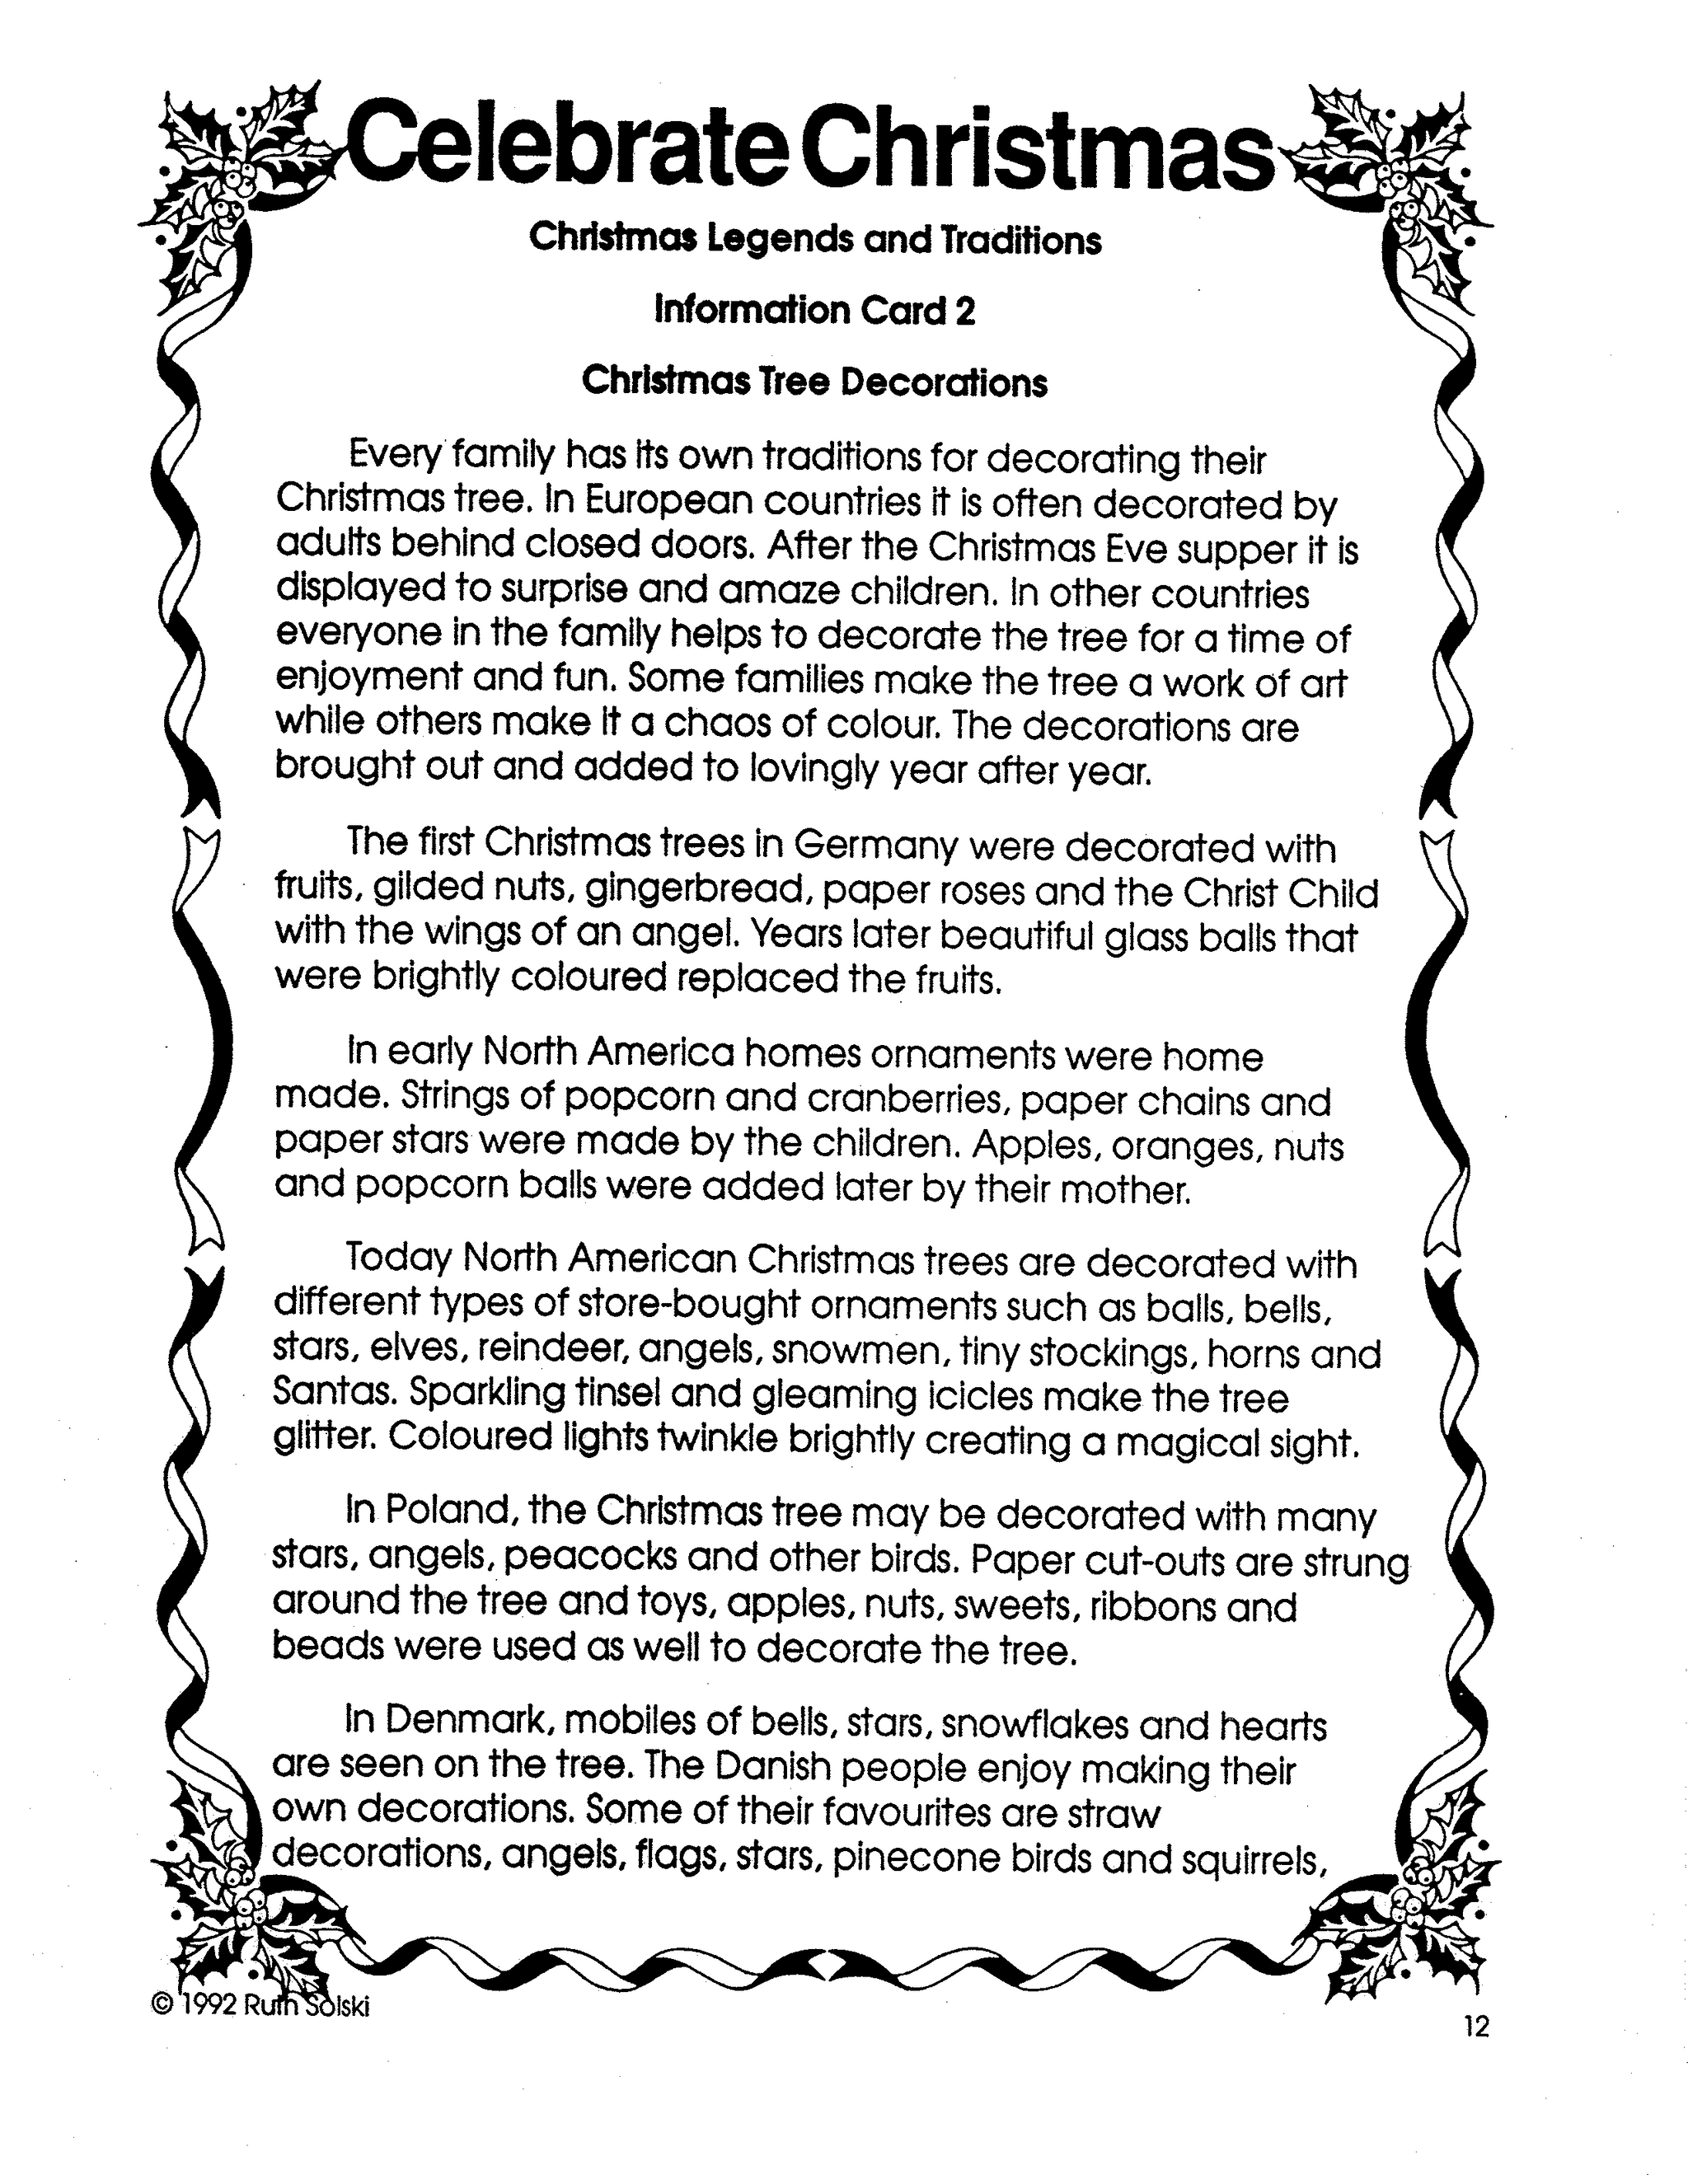 Celebrate Christmas
Christmas Legends and Traditions
Information Card 2
Christmas Tree Decorations
Every family has its own traditions for decorating their
Christmas tree. In European countries it is often decorated by
adults behind closed doors. After the Christmas Eve supper it is
displayed to surprise and amaze children. In other countries
everyone in the family helps to decorate the tree for a time of
enjoyment and fun. Some families make the tree a work of art
while others make it a chaos of colour. The decorations are
brought out and added to lovingly year after year.
The first Christmas trees in Germany were decorated with
fruits, gilded nuts, gingerbread, paper roses and the Christ Child
with the wings of an angel. Years later beautiful glass balls that
were brightly coloured replaced the fruits.
In early North America homes ornaments were home
made. Strings of popcorn and cranberries, paper chains and
paper stars were made by the children. Apples, oranges, nuts
and popcorn balls were added later by their mother.
Today North American Christmas trees are decorated with
different types of store-bought ornaments such as balls, bells,
stars, elves, reindeer, angels, snowmen, tiny stockings, horns and
Santas. Sparkling tinsel and gleaming icicles make the tree
glitter. Coloured lights twinkle brightly creating a magical sight.
In Poland, the Christmas tree may be decorated with many
stars, angels, peacocks and other birds. Paper cut-outs are strung
around the tree and toys, apples, nuts, sweets, ribbons and
beads were used as well to decorate the tree.
In Denmark, mobiles of bells, stars, snowflakes and hearts
are seen on the tree. The Danish people enjoy making their
own decorations. Some of their favourites are straw
decorations, angels, flags, stars, pinecone birds and squirrels,
© 1992 Ruth Solski
12